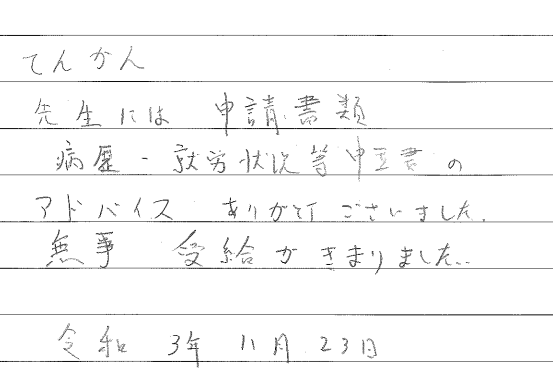 てんかん
先生には 申請書類
病歴・就労状況等申立書の
アドバイス ありがとう ございました.
無事 受給がきまりました..
令和 3年 11月 23日